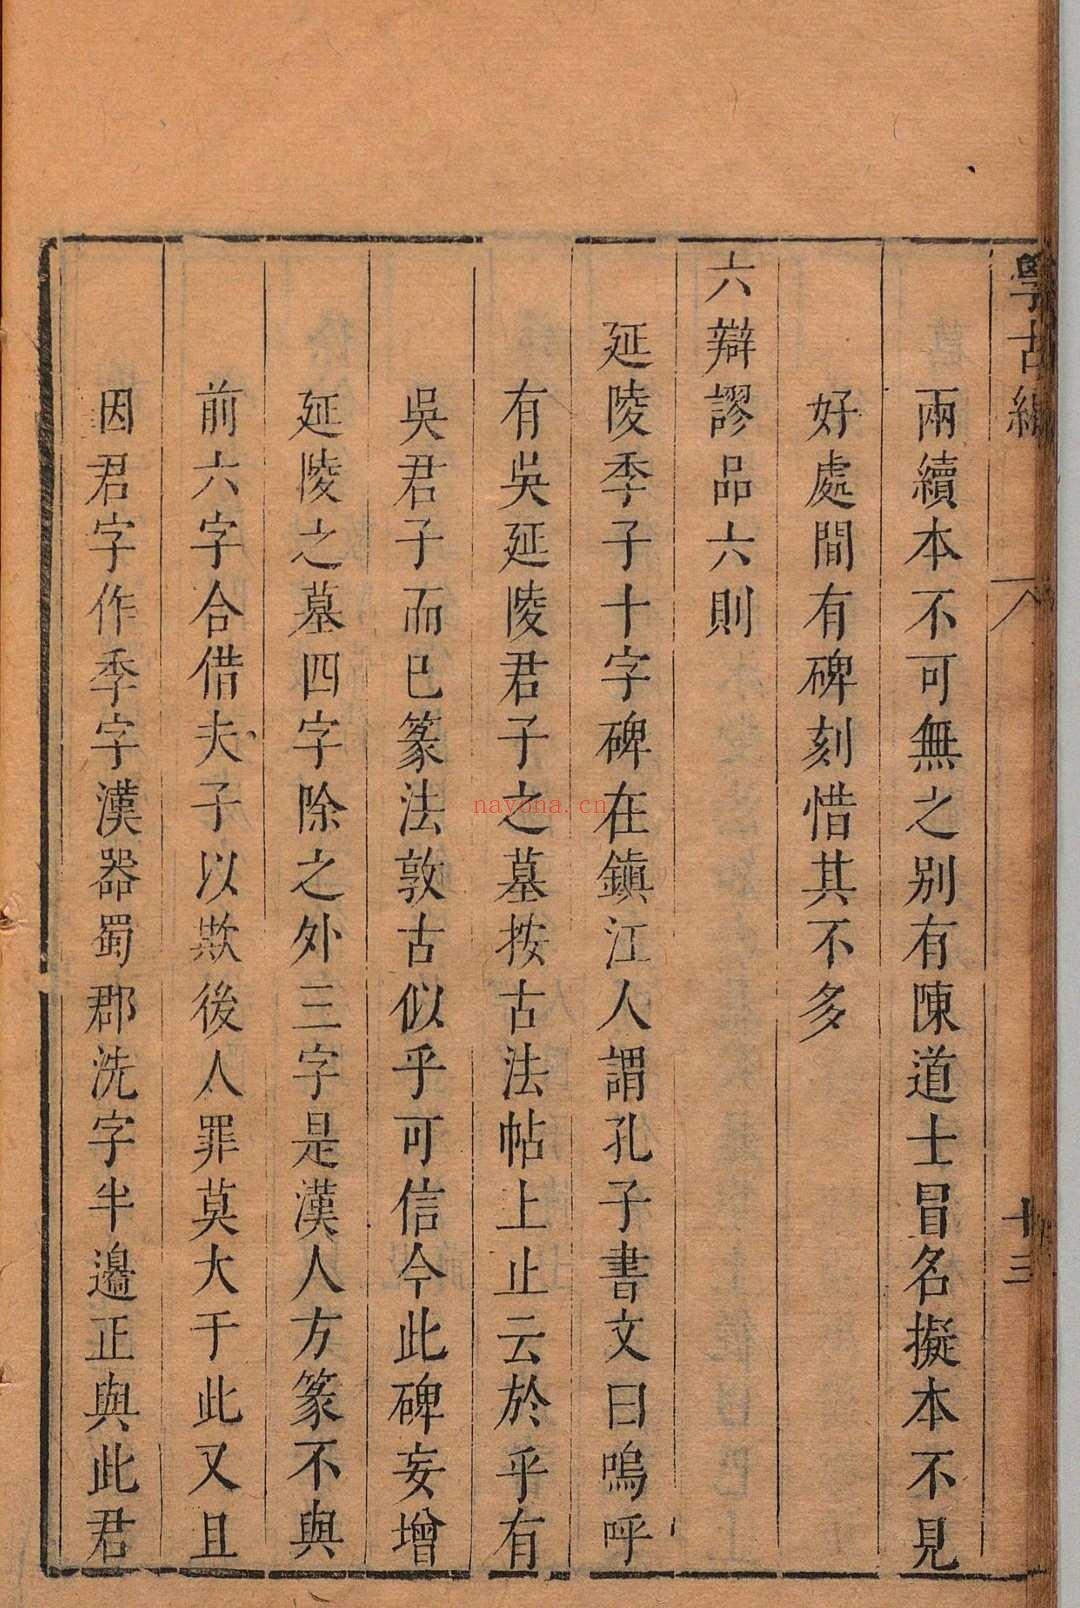 學古編
十三
兩續本不可無之别有陳道士冒名擬本不見
好處間有碑刻惜其不多
六辯謬品六則
延陵季子十字碑在鎮江人謂孔子書文曰嗚呼
有吳延陵君子之墓按古法帖上止云於乎有
吳君子而巳篆法敦古似乎可信今此碑妄增
延陵之墓四字除之外三字是漢人方篆不與
前六字合借夫子以欺後人罪莫大于此又且
因君字作季字漢器蜀郡洗字半邊正與此君
nayona.cn